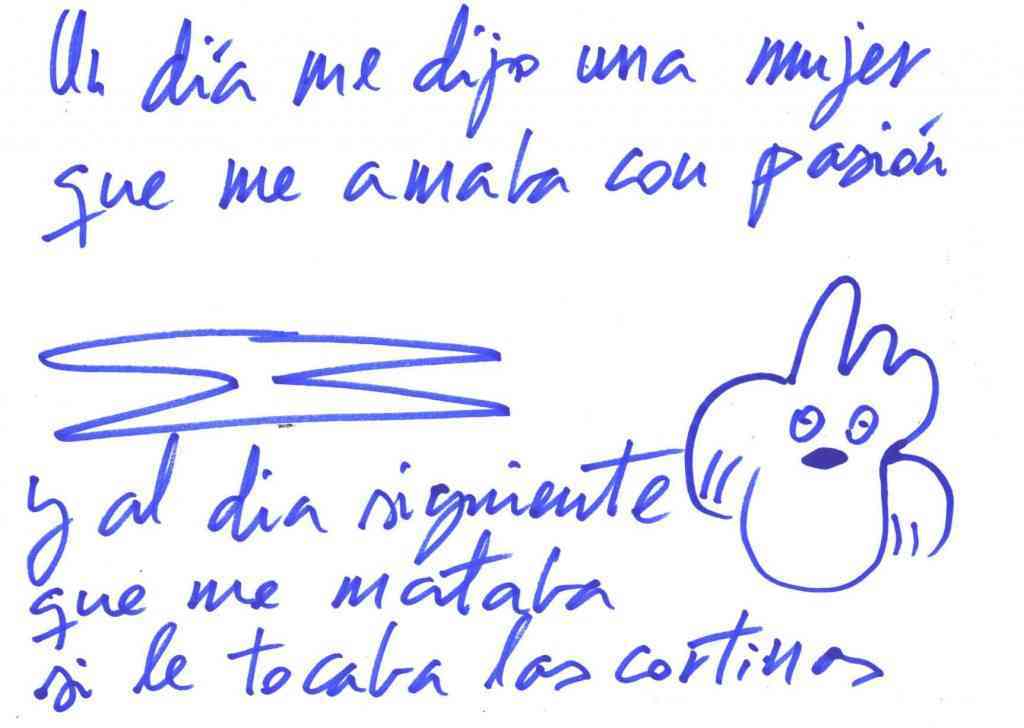 Un día me dijo una mujer
que me amaba con pasión
y al dia siguiente
que me mataba
si le tocaba las cortinas